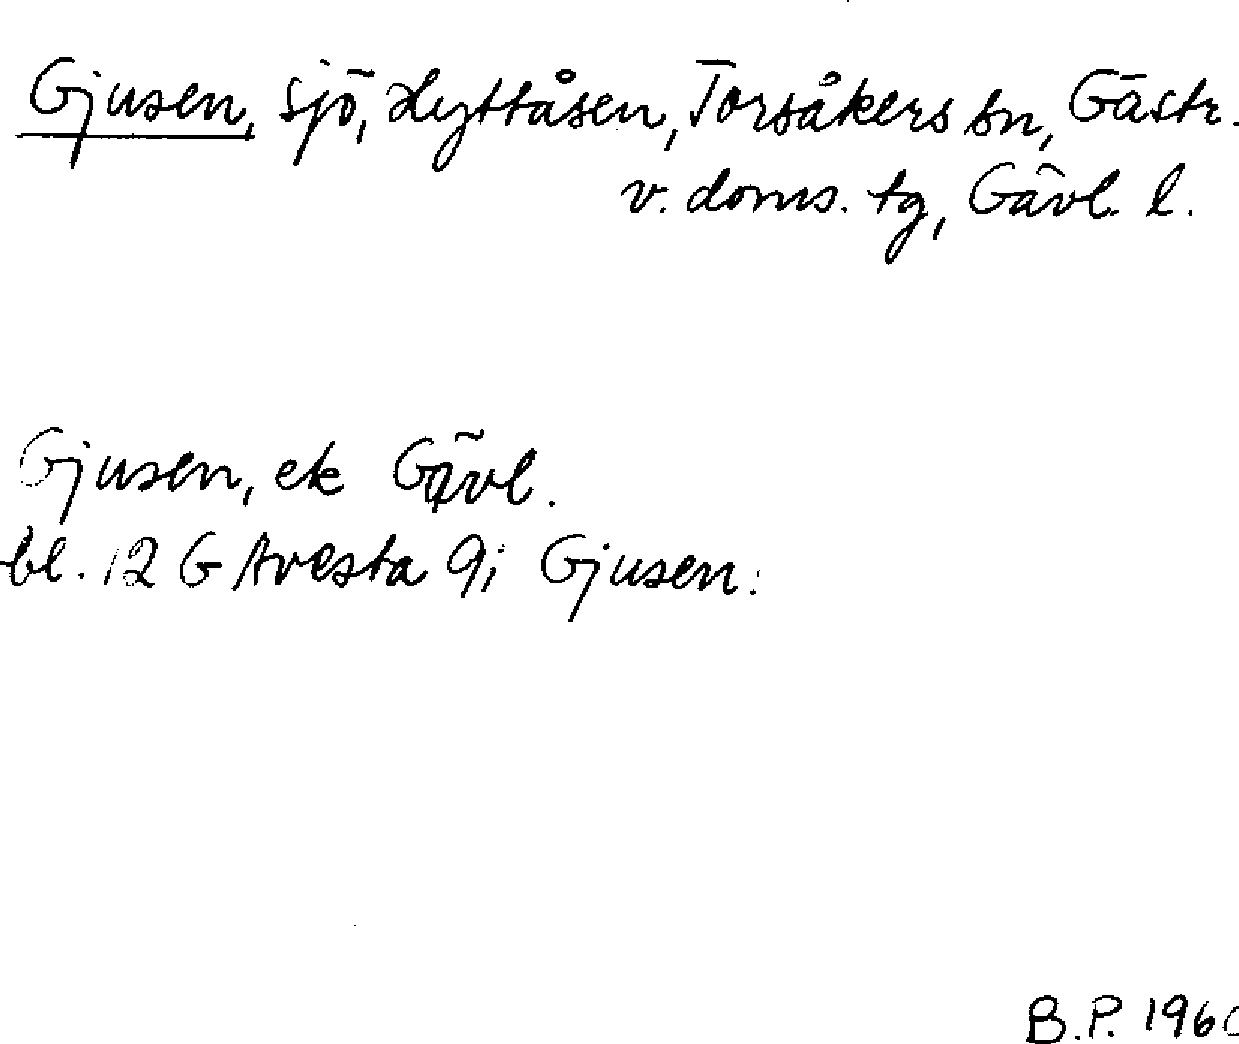 Gjusen, sjö, Hyttåsen, Torsåkers sn, Gästr.
v. doms. tg, Gävl. l.
Gjusen, ek Gävl.
bl. 12 G Avesta 9i Gjusen.
B.P. 1960